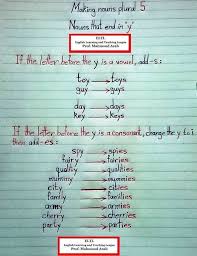 Making nouns plural 5
Nouns that end in 'y'
ELTL
English Learning and Teaching League
Prof. Mahmoud Anab
If the letter before the y is a vowel, add -s:
toy → toys
guy → guys
day → days
key → keys
If the letter before the y is a consonant, change the y to i
then add -es:
spy → spies
fairy → fairies
quality → qualities
mummy → mummies
city → cities
family → families
army → armies
cherry → cherries
party → parties
ELTL
English Learning and Teaching League
Prof. Mahmoud